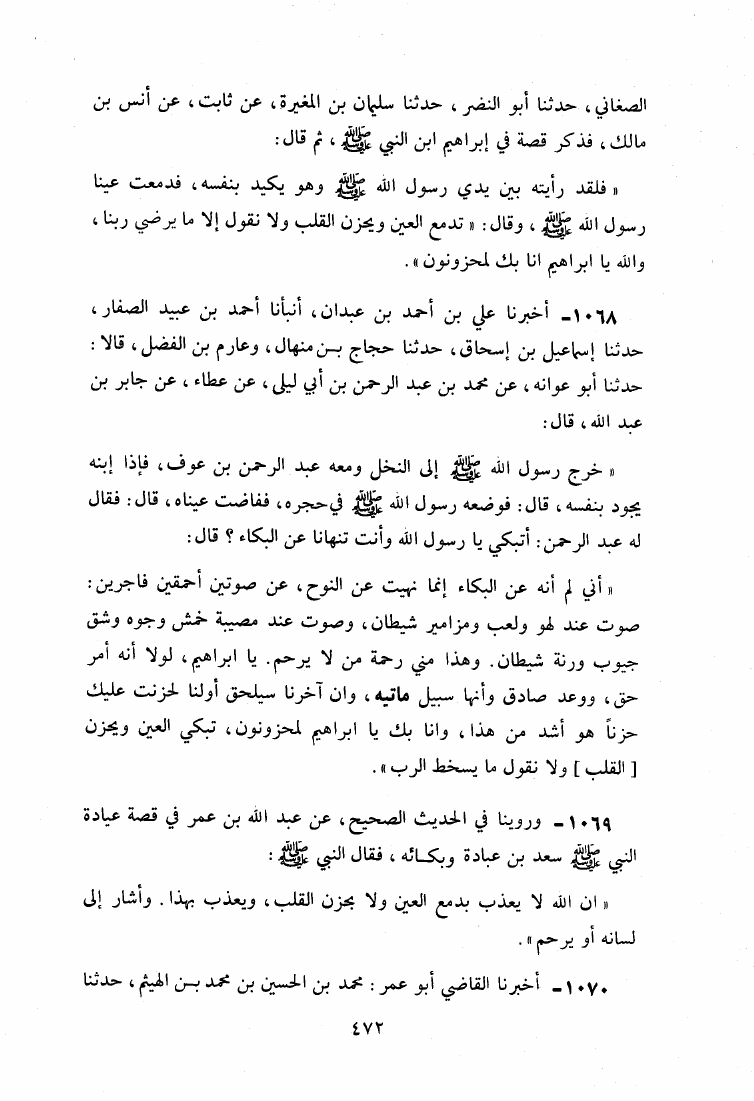 الصغاني، حدثنا أبو النضر، حدثنا سليمان بن المغيرة، عن ثابت، عن أنس بن
مالك، فذكر قصة في إبراهيم ابن النبي ﷺ، ثم قال:
« فلقد رأيته بين يدي رسول الله ﷺ وهو يكيد بنفسه، فدمعت عينا
رسول الله ﷺ، وقال: « تدمع العين ويحزن القلب ولا نقول إلا ما يرضي ربنا،
والله يا ابراهيم انا بك لمحزونون ».
١٠٦٨ـ أخبرنا علي بن أحمد بن عبدان، أنبأنا أحمد بن عبيد الصفار،
حدثنا إسماعيل بن إسحاق، حدثنا حجاج بن منهال، وعارم بن الفضل، قالا:
حدثنا أبو عوانه، عن محمد بن عبد الرحمن بن أبي ليلى، عن عطاء، عن جابر بن
عبد الله، قال:
« خرج رسول الله ﷺ إلى النخل ومعه عبد الرحمن بن عوف، فإذا إبنه
يجود بنفسه، قال: فوضعه رسول الله ﷺ في حجره، ففاضت عيناه، قال: فقال
له عبد الرحمن: أتبكي يا رسول الله وأنت تنهانا عن البكاء؟ قال:
« أني لم أنه عن البكاء إنما نهيت عن النوح، عن صوتين أحمقين فاجرين:
صوت عند لهو ولعب ومزامير شيطان، وصوت عند مصيبة خمش وجوه وشق
جيوب ورنة شيطان. وهذا مني رحمة من لا يرحم. يا ابراهيم، لولا أنه أمر
حق، ووعد صادق وأنها سبيل ماتيه، وان آخرنا سيلحق أولنا لحزنت عليك
حزناً هو أشد من هذا، وانا بك يا ابراهيم لمحزونون، تبكي العين ويحزن
[ القلب ] ولا نقول ما يسخط الرب ».
١٠٦٩ـ وروينا في الحديث الصحيح، عن عبد الله بن عمر في قصة عيادة
النبي ﷺ سعد بن عبادة وبكائه، فقال النبي ﷺ:
« ان الله لا يعذب بدمع العين ولا بحزن القلب، ويعذب بهذا. وأشار إلى
لسانه أو يرحم ».
١٠٧٠ـ أخبرنا القاضي أبو عمر: محمد بن الحسين بن محمد بن الهيثم، حدثنا
٤٧٢